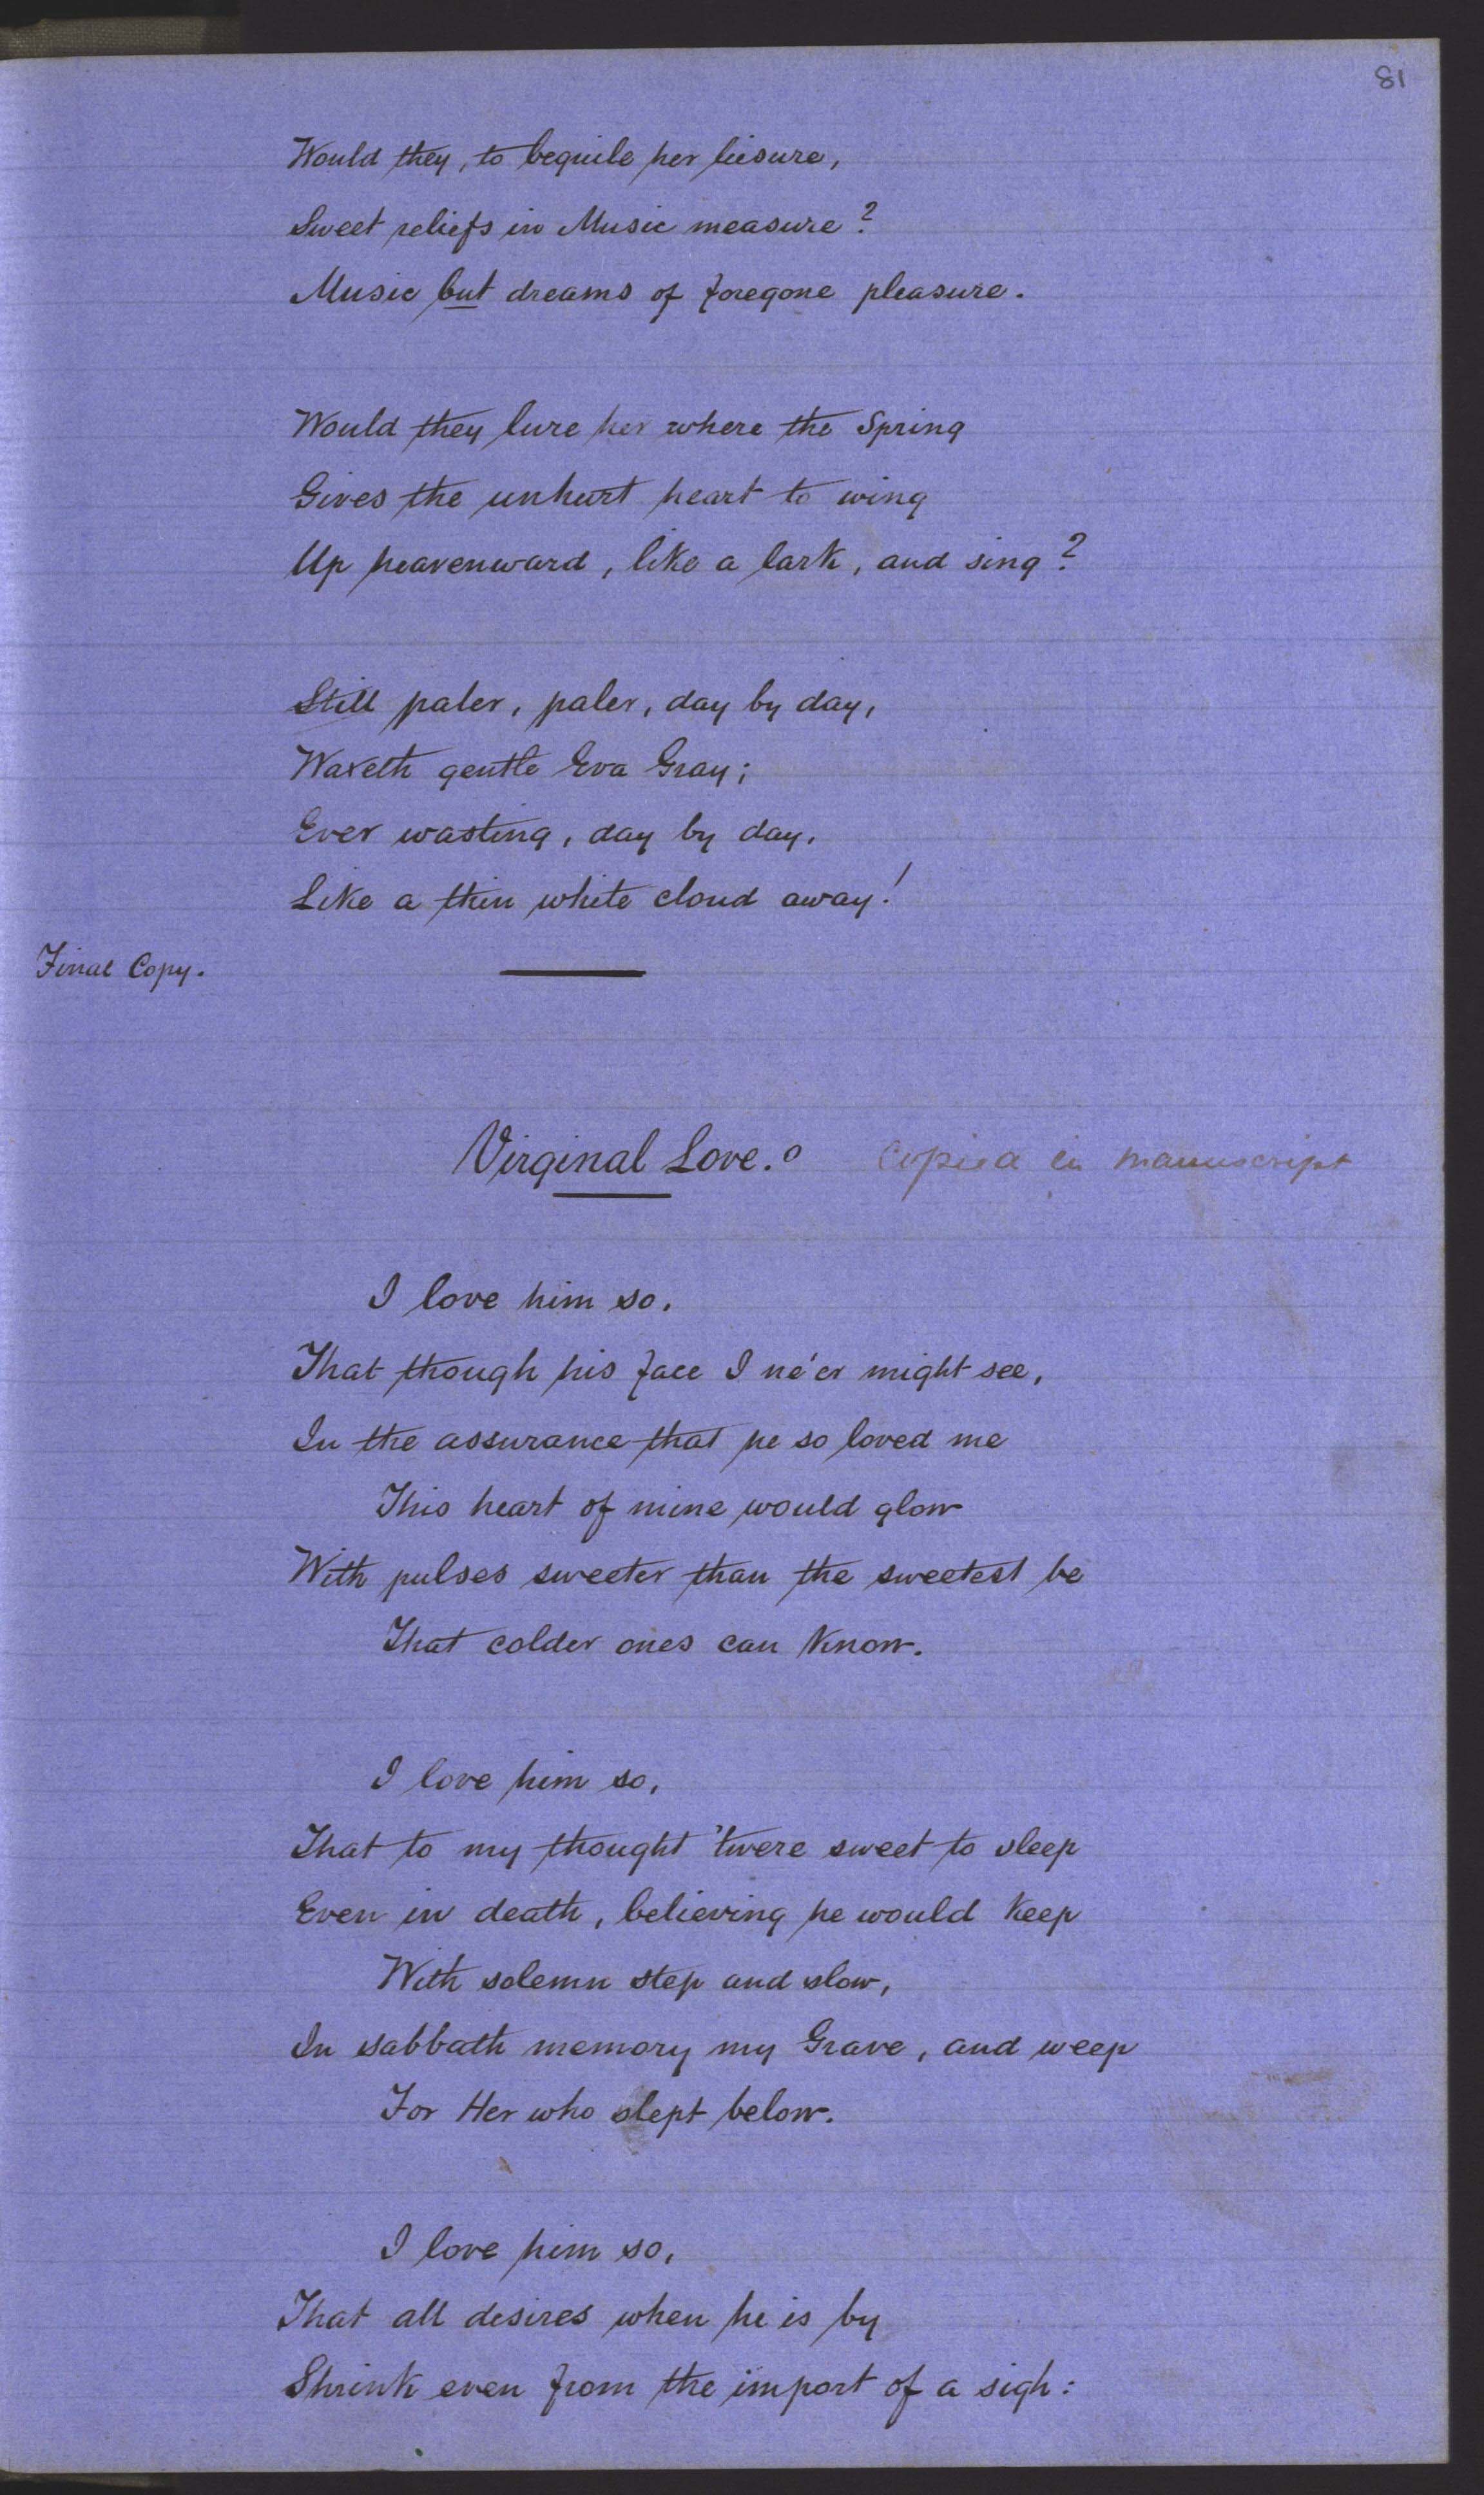 81
Would they, to beguile her liesure,
Sweet reliefs in Music measure?
Music but dreams of foregone pleasure.
Would they lure her where the Spring
Gives the unhurt heart to wing
Up heavenward, like a lark, and sing?
Still paler, paler, day by day,
Waxeth gentle Eva Gray;
Ever wasting, day by day,
Like a thin white cloud away!
Final Copy.
Virginal Love.° Copied in manuscript
I love him so,
That though his face I ne'er might see,
In the assurance that he so loved me
This heart of mine would glow
With pulses sweeter than the sweetest be
That colder ones can know.
I love him so,
That to my thought 'twere sweet to sleep
Even in death, believing he would keep
With solemn step and slow,
In sabbath memory my Grave, and weep
For Her who slept below.
I love him so,
That all desires when he is by
Shrink even from the import of a sigh: